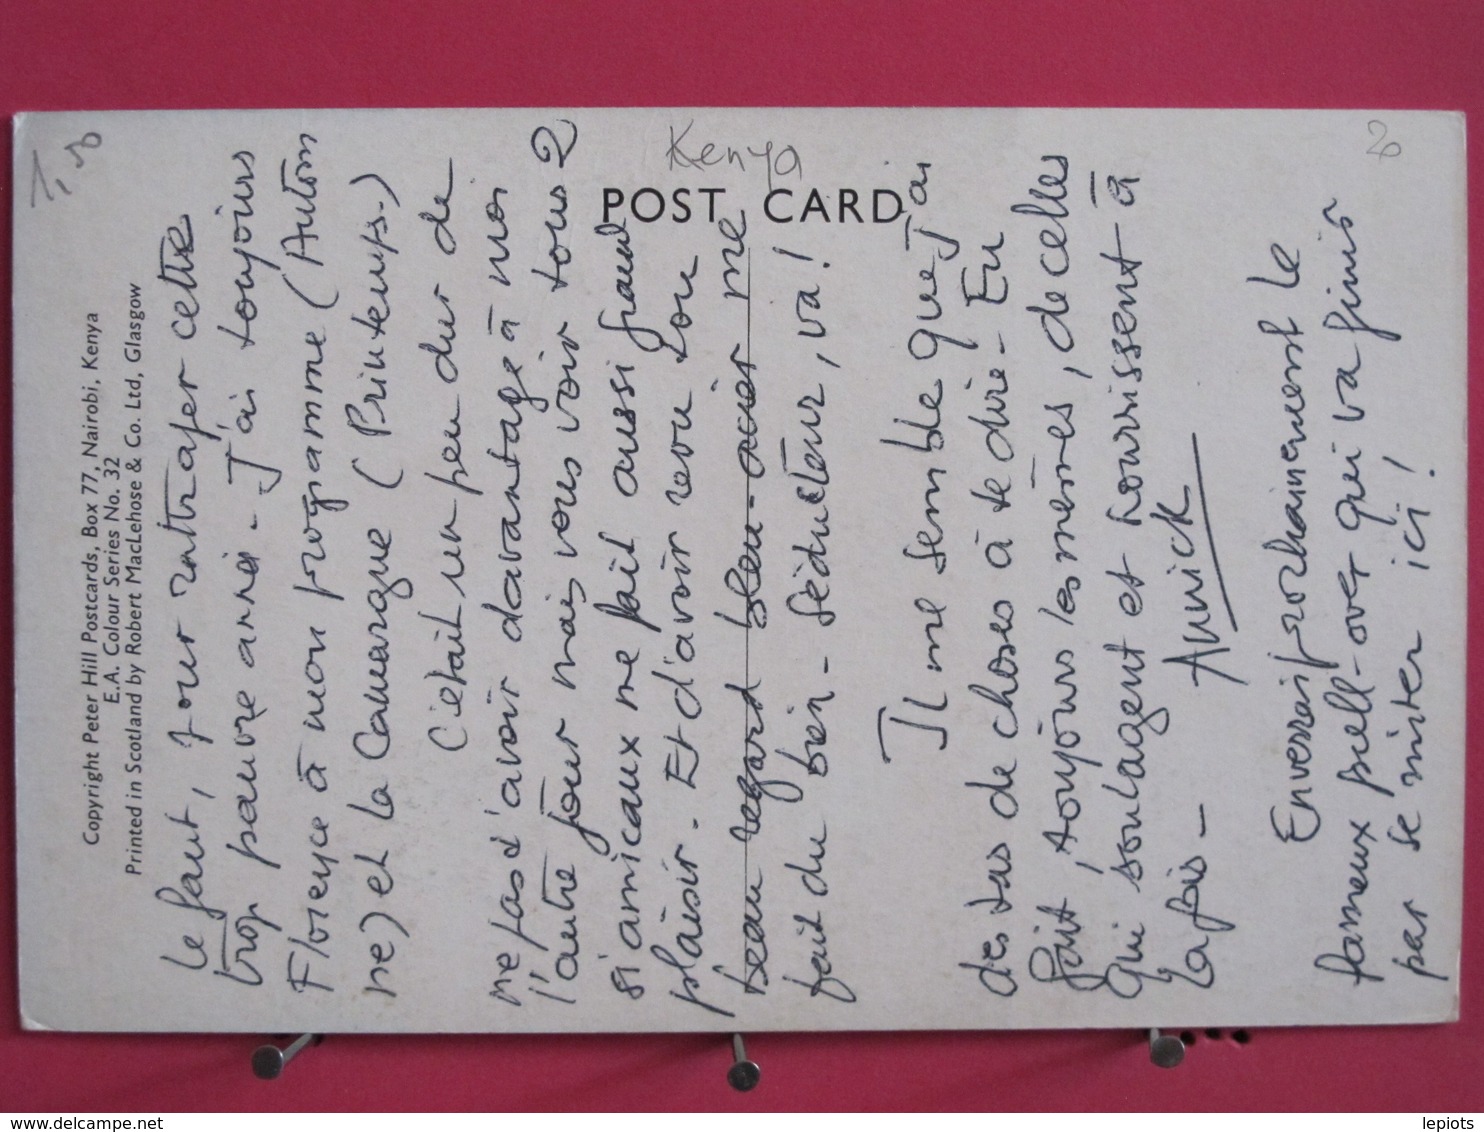 1,50
Kenya
20
POST CARD
Copyright Peter Hill Postcards, Box 77, Nairobi, Kenya
E.A. Colour Series No. 32
Printed in Scotland by Robert MacLehose & Co. Ltd, Glasgow
Le faut, pour rattraper cette
trop pauvre année - J'ai toujours
Florence à mon programme (Autom
ne) et la Camargue (Printemps.)
C'était un peu dur de
ne pas t'avoir davantage à moi
l'autre jour mais vous voir tous 2
si amicaux me fait aussi grand
plaisir. Et d'avoir revu ton
beau regard bleu-acier me
fait du bien - séducteur, va!
Il me semble que j'ai
des tas de choses à te dire - En
fait, toujours les mêmes, de celles
qui soulagent et nourrissent à
la fois -
Annick
Enverrai prochainement le
fameux pull-over qui va finir
par se miter ici!
delcampe.net
lepiots